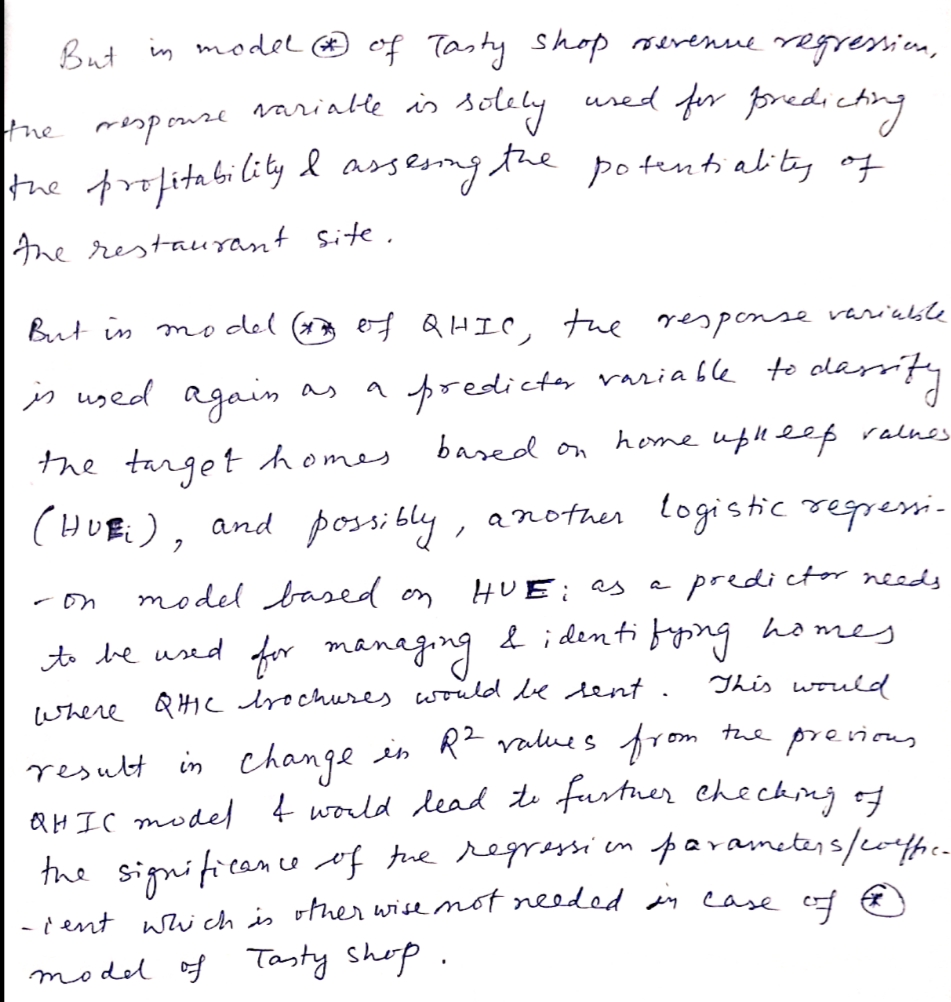 But in model (*) of Tasty shop revenue regression,
the response variable is solely used for predicting
the profitability & assesing the potentiality of
the restaurant site.
But in model (**) of QHIC, the response variable
is used again as a predicter variable to classify
the target homes based on home upkeep values
(HUEi), and possibly, another logistic regressi-
-on model based on HUEi as a predictor needs
to be used for managing & identifying homes
where QHIC brochures would be sent. This would
result in change in R² values from the previous
QHIC model & would lead to further checking of
the significance of the regression parameters/coeffic-
-ient which is otherwise not needed in case of (*)
model of Tasty shop.